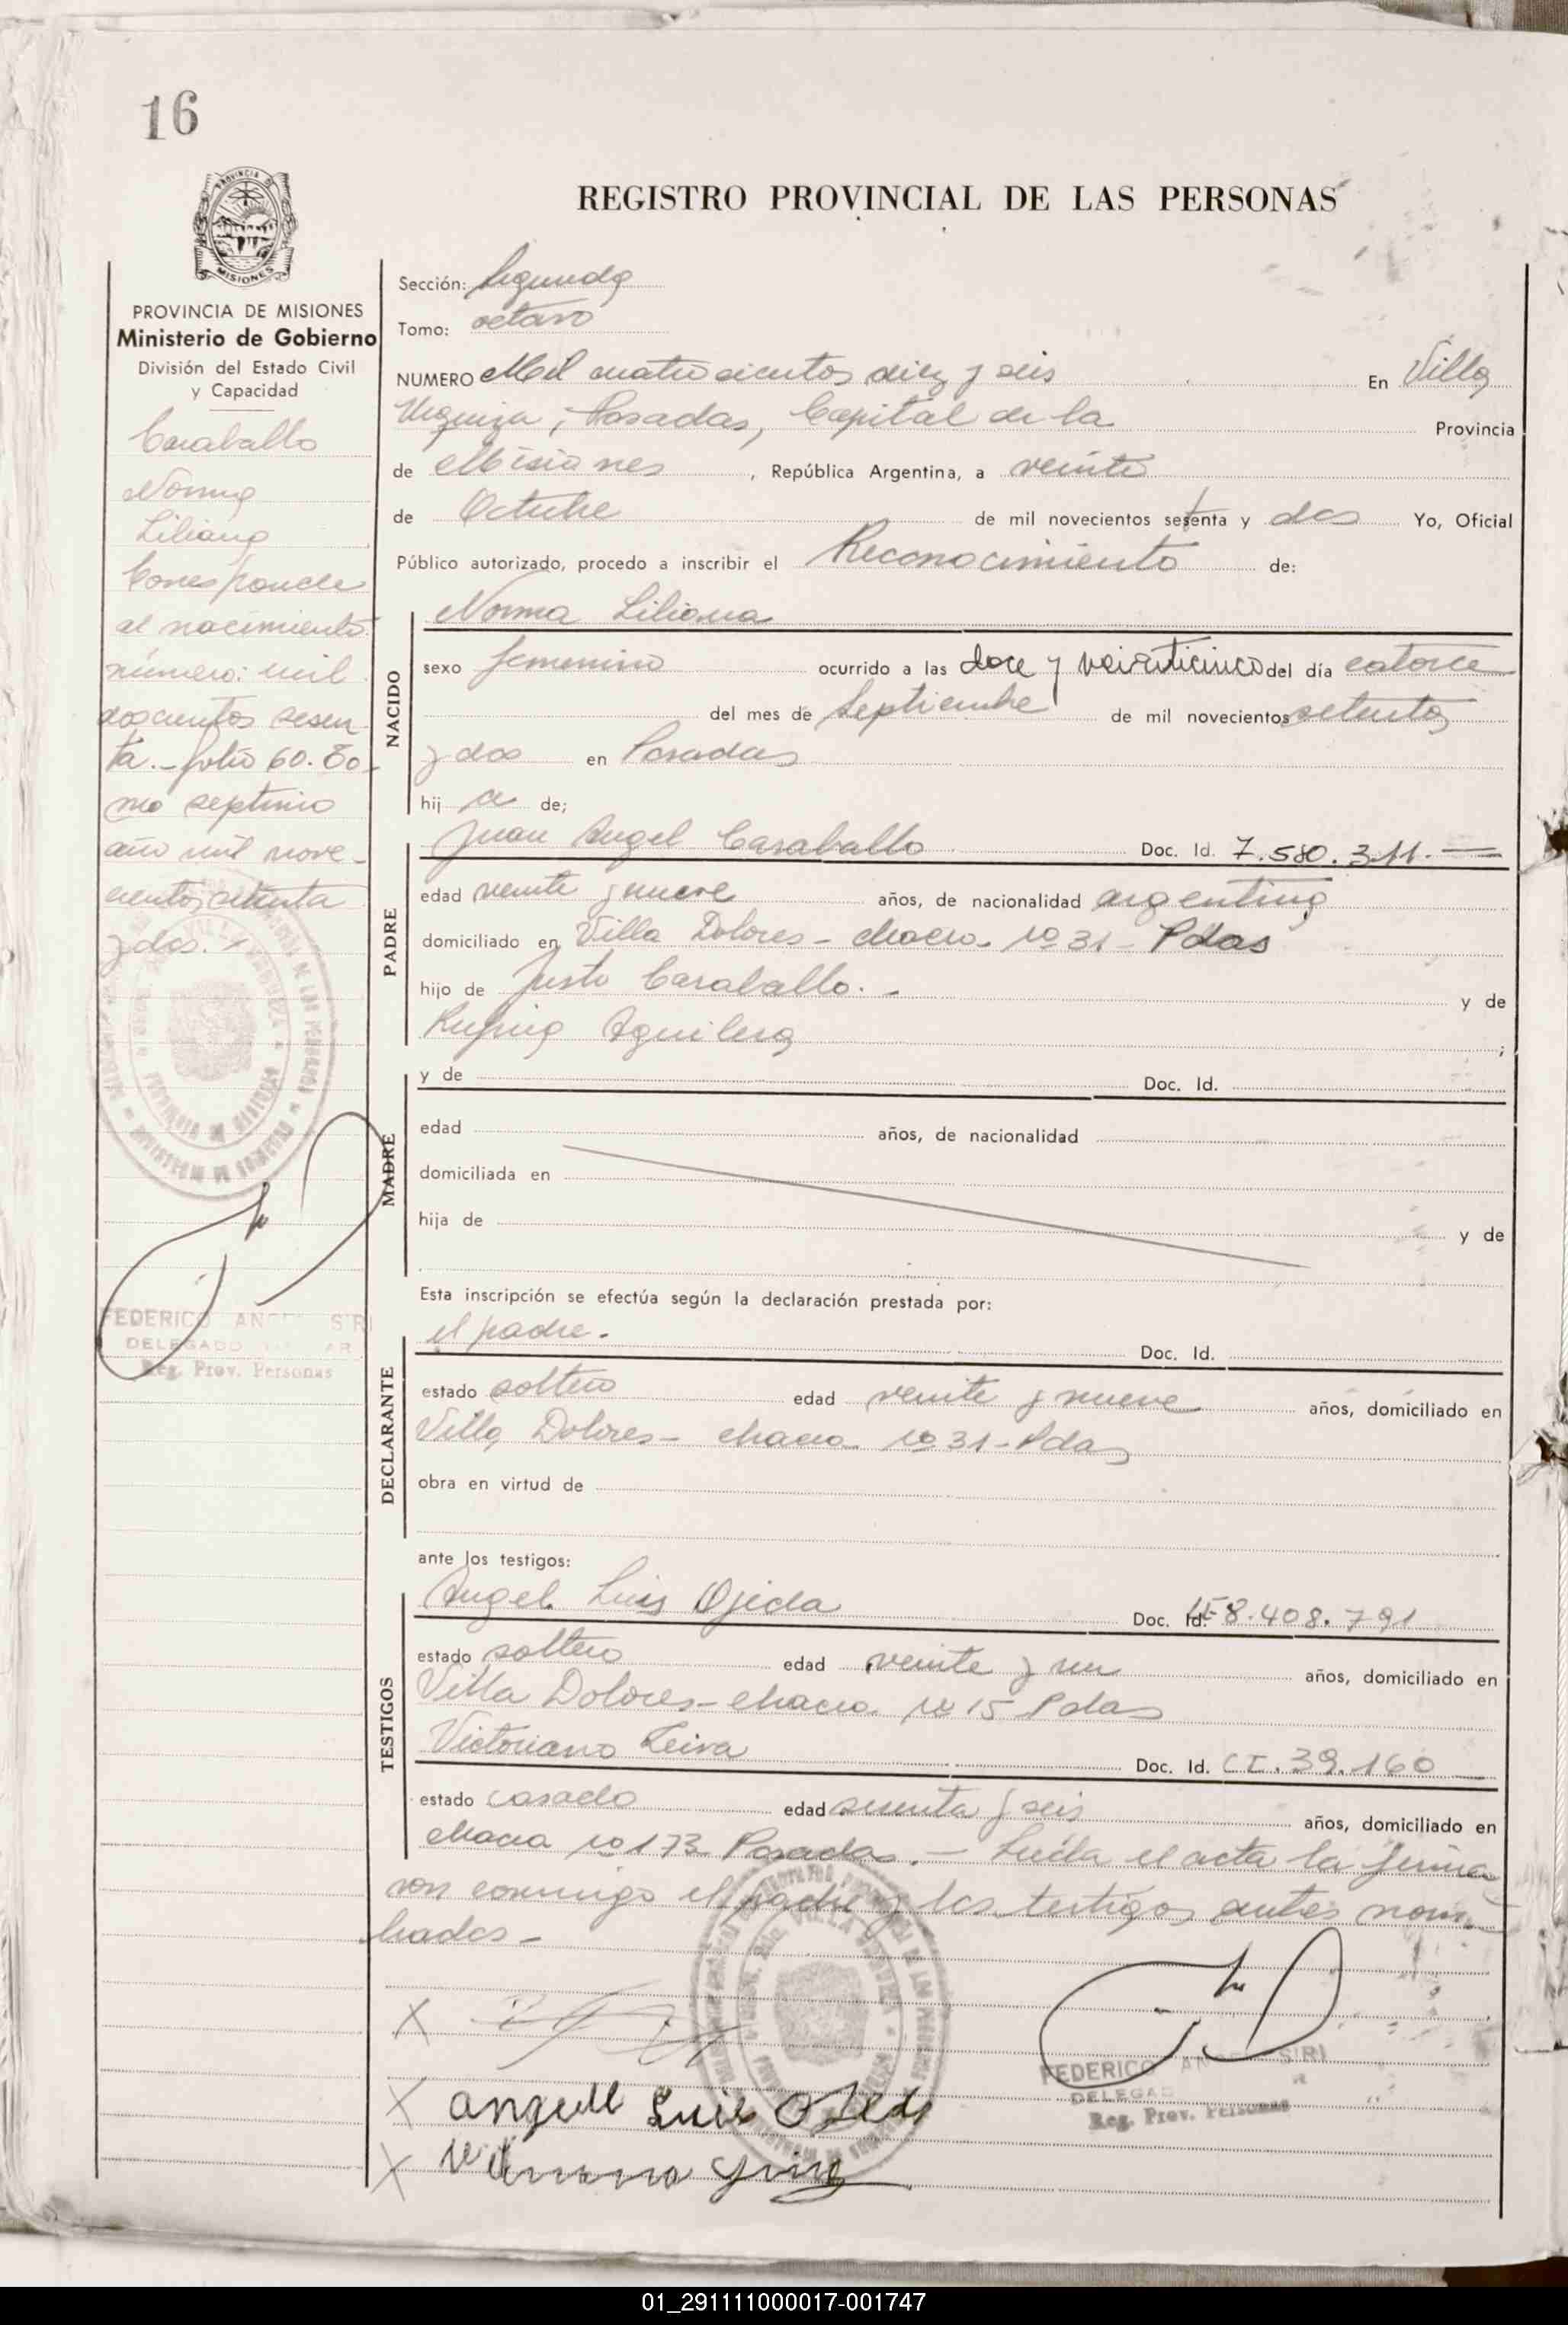 16
PROVINCIA DE
MISIONES
REGISTRO PROVINCIAL DE LAS PERSONAS
PROVINCIA DE MISIONES
Ministerio de Gobierno
División del Estado Civil
y Capacidad
Caraballo
Norma
Liliana
Corresponde
al nacimiento
número: mil
doscientos sesen
ta.- folio 60. To
mo septimo
año mil nove-
cientos setenta
y dos.-
FEDERICO ANGEL SIRI
DELEGADO
Reg. Prov. Personas
Sección: Segunda
Tomo: octavo
NUMERO Mil cuatrocientos diez y seis En Villa
Urquiza, Posadas, Capital de la Provincia
de Misiones, República Argentina, a veinte
de Octubre de mil novecientos setenta y dos Yo, Oficial
Público autorizado, procedo a inscribir el Reconocimiento de:
NACIDO
Norma Liliana
sexo femenino ocurrido a las doce y veinticinco del día catorce
del mes de Septiembre de mil novecientos setenta
y dos en Posadas
hij a de;
PADRE
Juan Angel Caraballo Doc. Id. 7.580.311.—
edad veinte y nueve años, de nacionalidad argentina
domiciliado en Villa Dolores - chacra nº 31 - Pdas
hijo de Justo Caraballo.- y de
Rufina Aguilera ;
MADRE
y de Doc. Id.
edad años, de nacionalidad
domiciliada en
hija de y de
Esta inscripción se efectúa según la declaración prestada por:
DECLARANTE
el padre. Doc. Id.
estado soltero edad veinte y nueve años, domiciliado en
Villa Dolores - chacra nº 31 - Pdas
obra en virtud de
ante los testigos:
TESTIGOS
Angel Luis Ojeda Doc. Id. LE 8.408.791
estado soltero edad veinte y un años, domiciliado en
Villa Dolores - chacra nº 15 Pdas
Victoriano Leiva Doc. Id. CI. 39.160
estado casado edad y seis años, domiciliado en
chacra nº 173 Posadas.- Leída el acta la firma
ron conmigo el padre y los testigos antes nom
brados-
X
X angell Luis Ojeda
X
FEDERICO ANGEL SIRI
DELEGAD
Reg. Prov. Personas
01_291111000017-001747